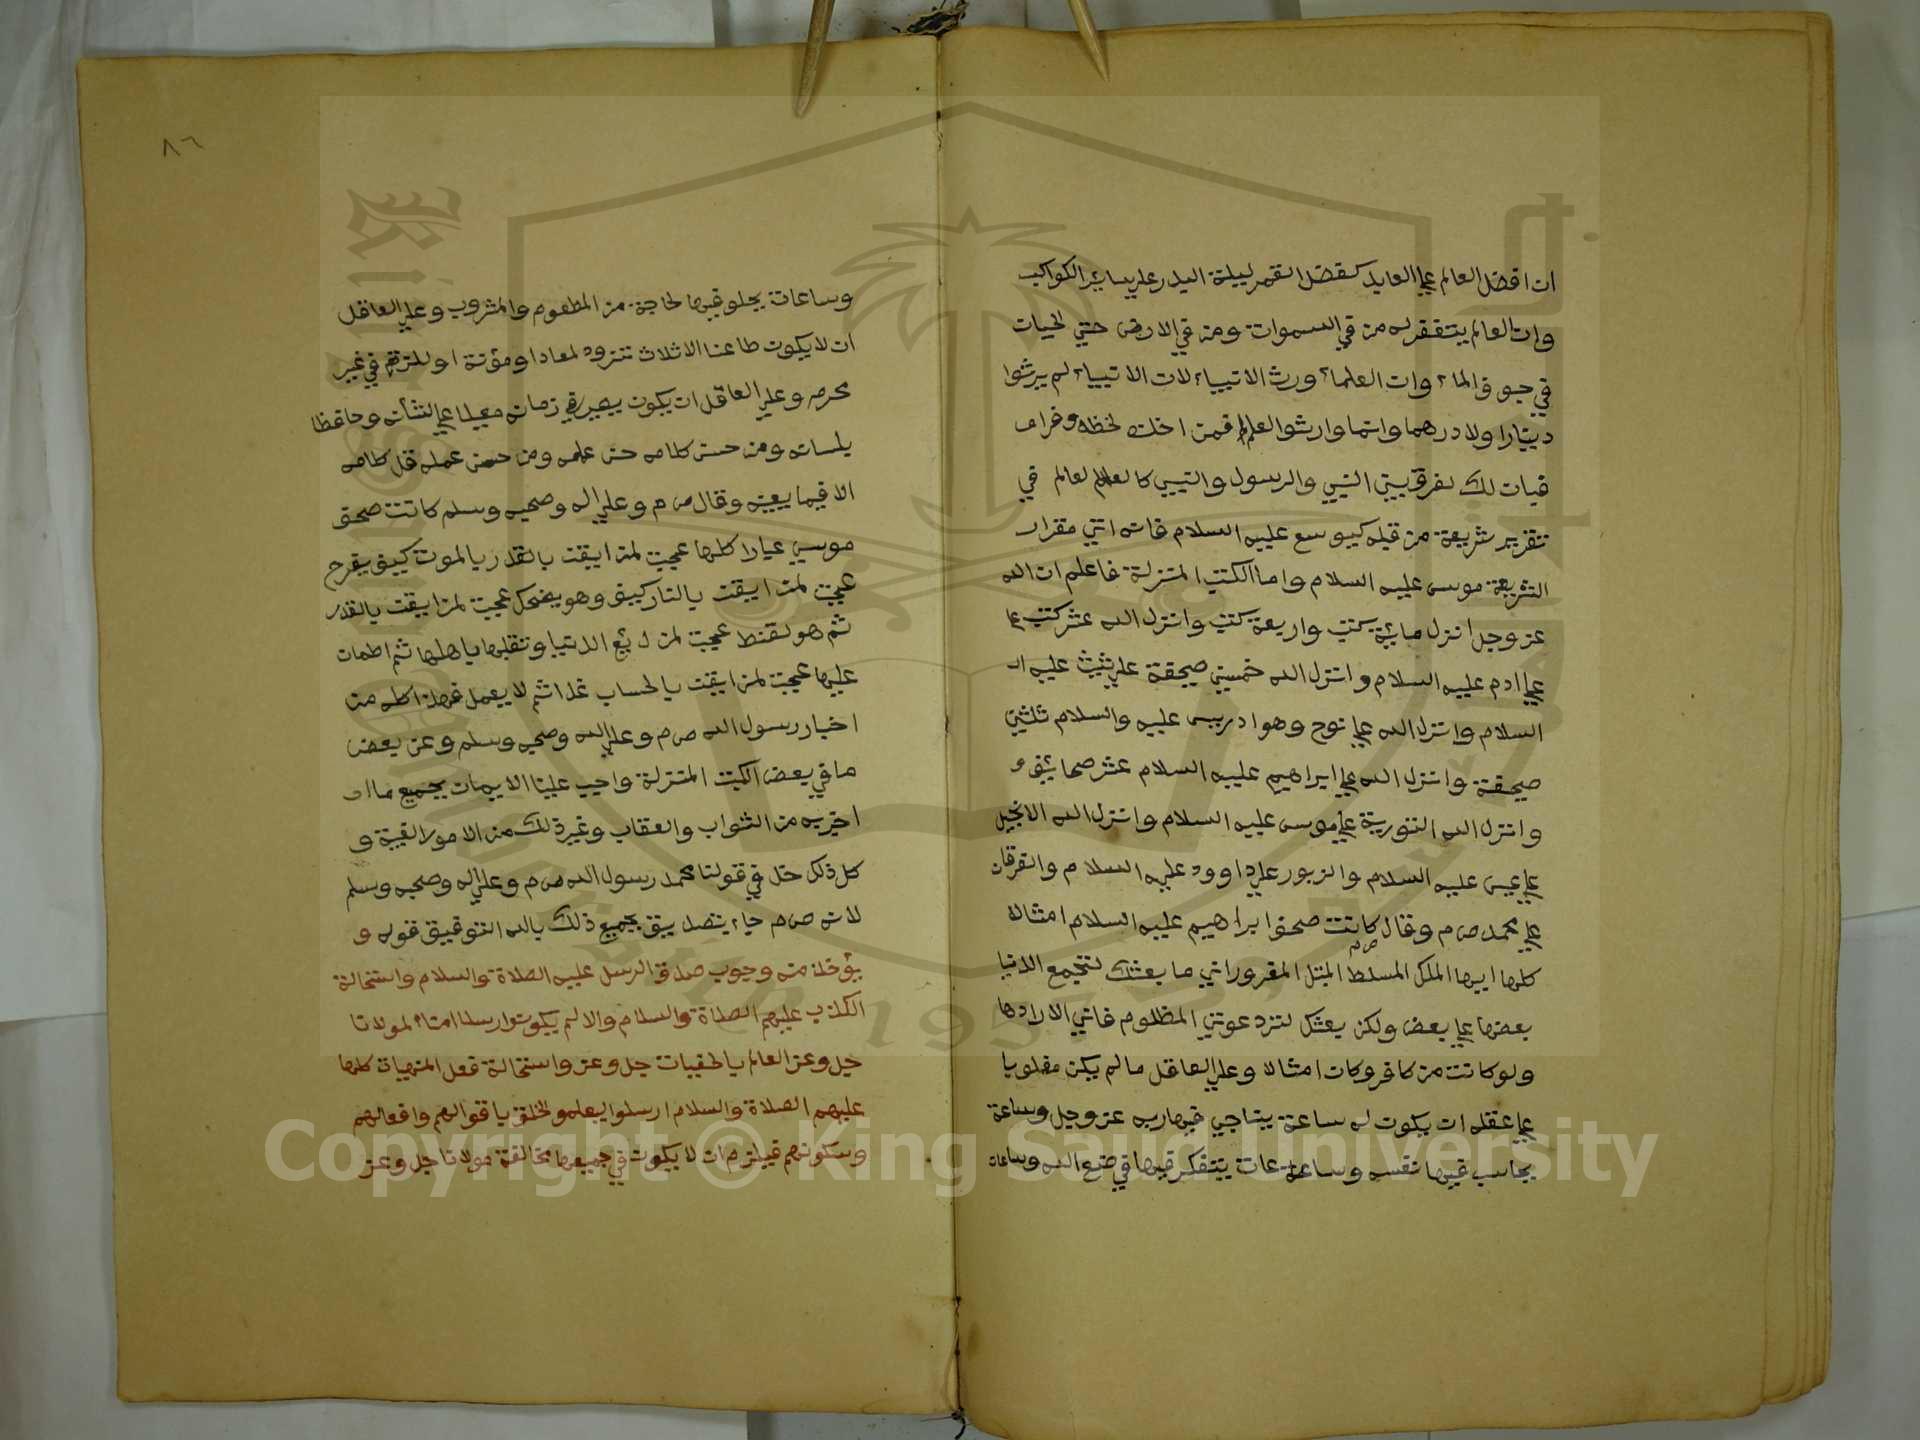 ان افضل العالم علي العابد كفضل القمر ليلة البدر علي سائر الكواكب
وان العالم يتغفر له من في السموات ومن في الارض حتي الحيات
في جوف الماء وان العلماء ورث الانبياء لان الانبياء لم يرثوا
دينارا ولا درهما وانما وارثوا العلم فمن اخذ لحظه وفراه
فبان لك لفرق بين النبي والرسول والنبي كالعالم لعالم في
تقرير شريعة من قبله كيوسع عليه السلام فانه اتي مقرار
الشريعة موسى عليه السلام واما الكتب المنزلة فاعلم ان الله
عز وجل انزل مائة كتب واربعة كتب وانزل الله عشر كتب علي
علي ادم عليه السلام وانزل الله خمسين صحيفة علي شيث عليه ال
السلام وانزل الله علي نوح وهو ادريس عليه والسلام ثلثين
صحيفة وانزل الله علي ابراهيم عليه السلام عشر صحائف و
وانزل الله التورية علي موسى عليه السلام وانزل الله الانجيل
علي عيسى عليه السلام والزبور علي داوود عليه السلام والفرقان
علي محمد ص م وقال كانت صحوا براهيم عليه السلام امثالا
ص م
كلها ايها الملك المسلط المبتل المغرور اني ما بعثتك لتجمع الدنيا
بعضها علي بعض ولكن بعثك لتزد عوتني المظلوم فاني الا اردها
ولو كانت من كافر وكان امثالا وعلي العاقل ما لم يكن مغلوبا
علي عقله ان يكون له ساعة يناجي فيها ربه عز وجل وساعة
يحاسب فيها نفسه وساعات يتفكر فيها في صنع الله وساعات
٨٦
وساعات يجلو فيها لحاجة من المطعوم والمشروب وعلي العاقل
ان لا يكون طاعنا الا ثلاث تتزود لمعاد او مؤنة او للتزقم في غير
محرم وعلي العاقل ان يكون بيصر في زمانه مقبلا علي الشأن وحافظا
بلسانه ومن حسن كلامه حن علمه ومن حسن عمله قل كلامه
الا فيما يعينه وقال ص م وعلي اله وصحبه وسلم كانت صحف
موسي عيارا كلها عجيت لمن ايقن بالقدر بالموت كيف يفرح
عجيت لمن ايقن بالنار كيف وهو يضحك عجيت لمن ايقن بالقدر
ثم هو لقنط عجيت لمن رائ الدنيا وتقلبها باهلها ثم اطمان
عليها عجيت لمن ايقن بالحساب غدا ثم لا يعمل فهذا كله من
اخبار رسول الله ص م وعلي اله وصحبه وسلم وعن بعض
ما في بعض الكتب المنزلة واجب علينا الايمان بجميع ما ا
اخبر به من الثواب والعقاب وغير ذلك من الامور الغيبة و
كل ذلك حل في قولنا محمد رسول الله ص م وعلي اله وصحبه وسلم
لانه ص م جاء بتصديق بجميع ذلك بالله التوفيق قوله و
يؤخذ منه وجوب صدق الرسل عليه الصلاة والسلام واستحالة
الكذب عليهم الصلاة والسلام والا لم يكونو ارسلا امناء لمولانا
جل وعز العالم بالحفيات جل وعز واستحالة فعل المنهيات كلها
عليهم الصلاة والسلام ارسلوا ليعلمو الخلق باقوالهم وافعالهم
وسكونهم فيلزم ان لا يكون في جميعها مخالفة مولانا جل وعز
Copyright © King Saud University
1957